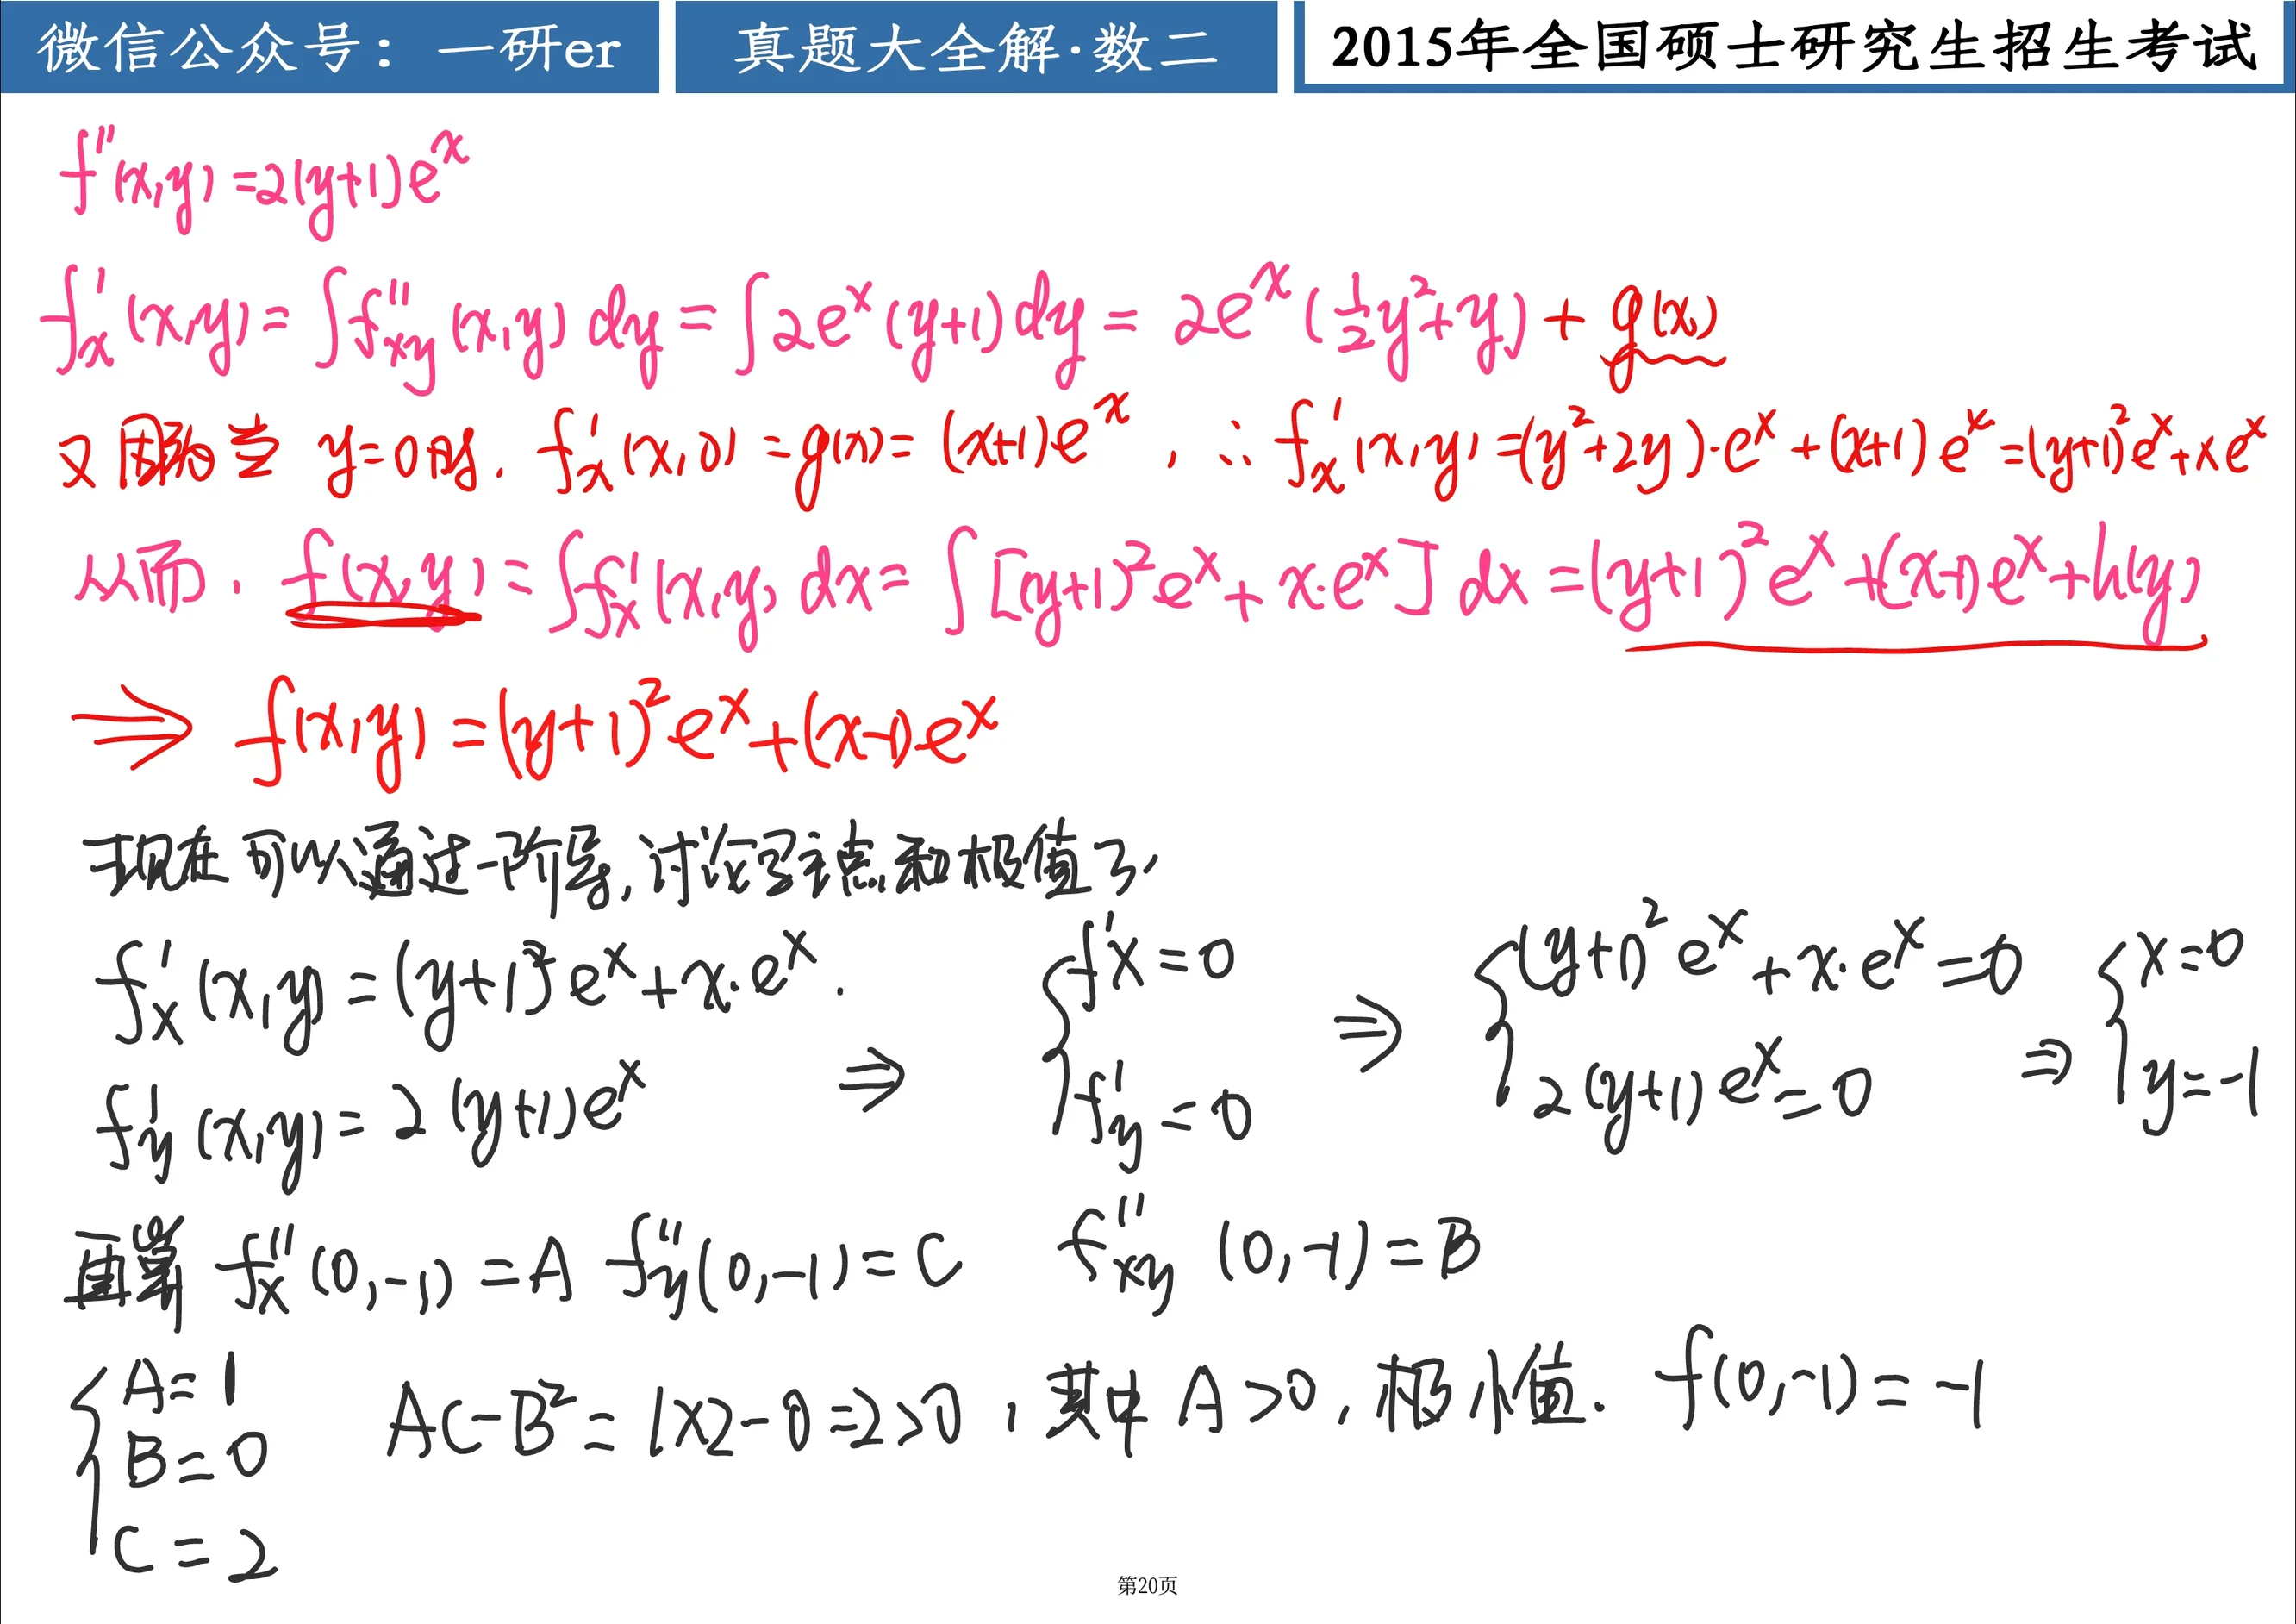 微信公众号：一研er 真题大全解·数二 2015年全国硕士研究生招生考试
f''(x,y)=2(y+1)e^x
f'_x(x,y)=∫f''_xy(x,y)dy=∫2e^x(y+1)dy=2e^x(½y²+y)+g(x)
又因为当 y=0时. f'_x(x,0)=g(x)=(x+1)e^x, ∴ f'_x(x,y)=(y²+2y)·e^x+(x+1)e^x=(y+1)²e^x+xe^x
从而. f(x,y)=∫f'_x(x,y)dx=∫[(y+1)²e^x+x·e^x]dx=(y+1)²e^x+(x-1)e^x+h(y)
⇒ f(x,y)=(y+1)²e^x+(x-1)e^x
现在可以通过一阶导,讨论驻点和极值了,
f'_x(x,y)=(y+1)²e^x+x·e^x. ⇒ {f'x=0 ⇒ {(y+1)²e^x+x·e^x=0 ⇒ {x=0
f'_y(x,y)=2(y+1)e^x f'_y=0 2(y+1)e^x=0 y=-1
再算 f''_x(0,-1)=A f''_y(0,-1)=C f''_xy(0,-1)=B
{A=1
AC-B²=1×2-0=2>0, 其中 A>0, 极小值. f(0,-1)=-1
B=0
C=2
第20页